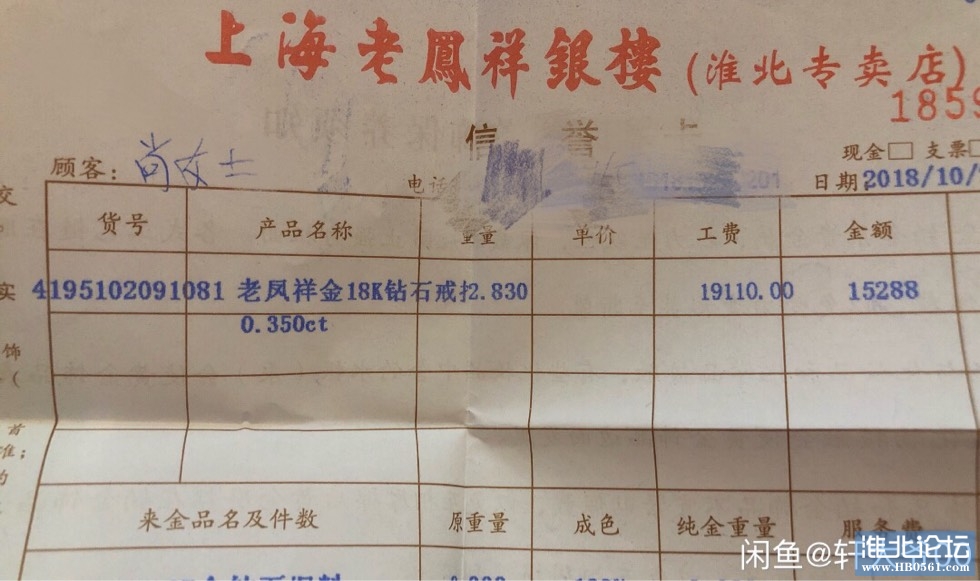 上海老鳳祥銀樓(淮北专卖店)
1859
信誉
现金□ 支票□
顾客: 尚女士
电话
日期 2018/10/
货号 产品名称 重量 单价 工费 金额
4195102091081 老凤祥金18K钻石戒 2.830 19110.00 15288
0.350ct
交
实
饰
(
首
准;
的
来金品名及件数 原重量 成色 纯金重量 服务费
闲鱼@轩
淮北论坛
www.HB0561.com